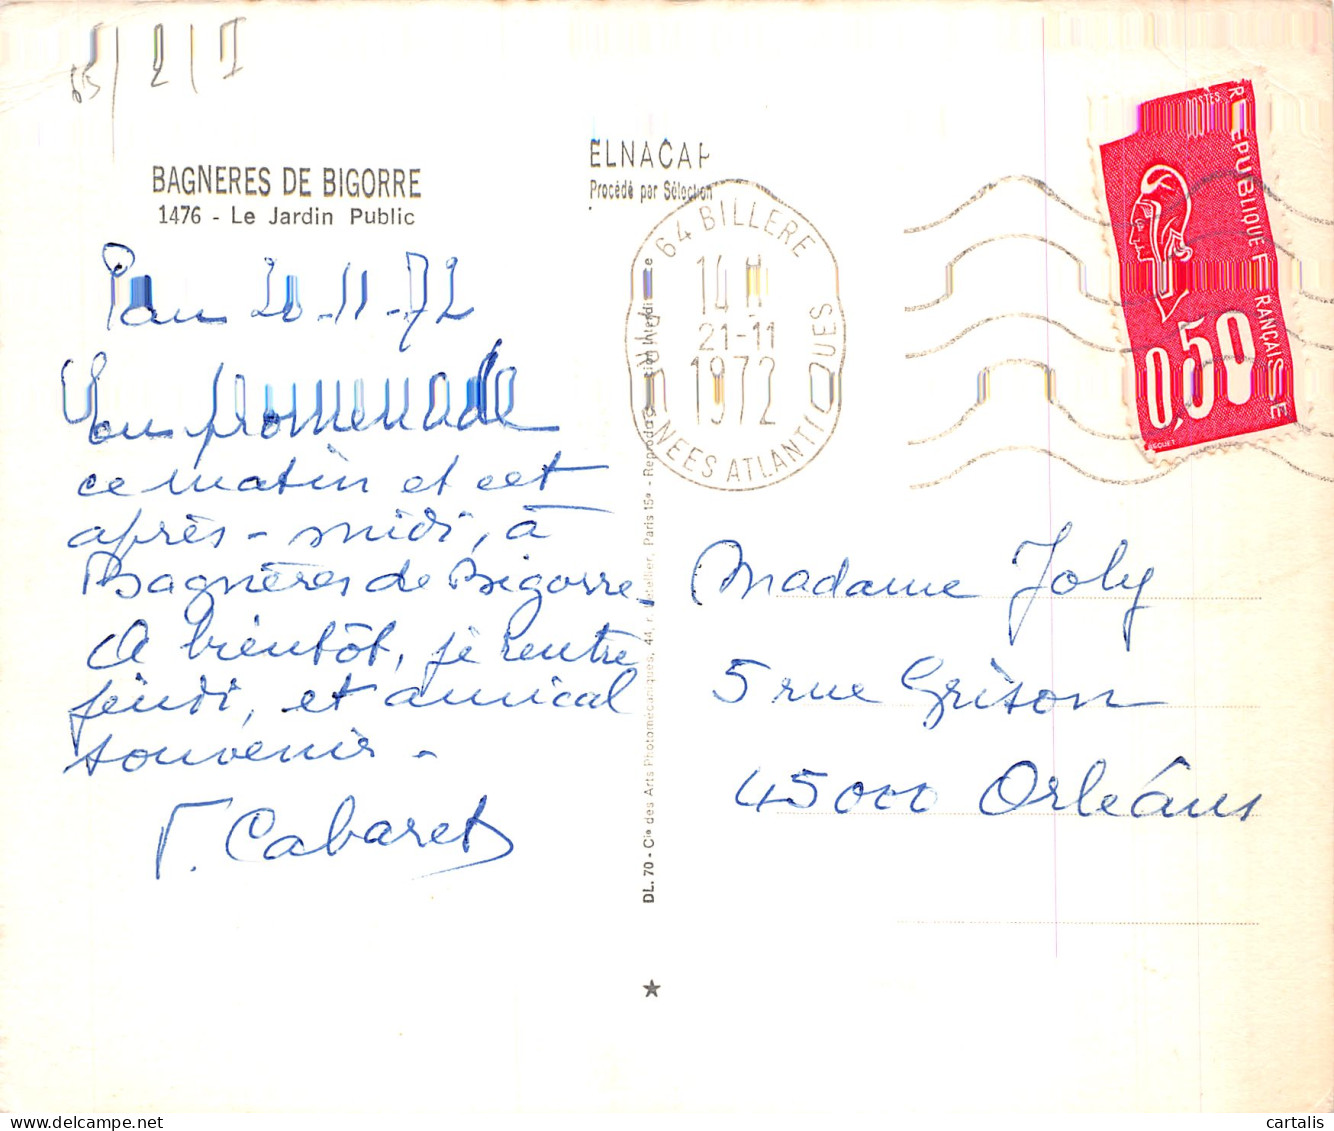 65/2/I
BAGNERES DE BIGORRE
1476 - Le Jardin Public
Pau 20-11-72
promenade
ce matin et cet
après-midi, à
Bagnères de Bigorre.
A bientôt, je rentre
jeudi, et amical
souvenir -
Cabaret
ELNACAP
Procédé par Sélection
64 BILLERE
14 H
21-11
1972
PYRENEES ATLANTIQUES
DL. 70 - Cie des Arts Photomécaniques, 44, r. Letellier, Paris 15e - Reproduc
REPUBLIQUE FRANÇAISE
POSTES
0,50
Madame Joly
5 rue Grison
45000 Orléans
cartalis